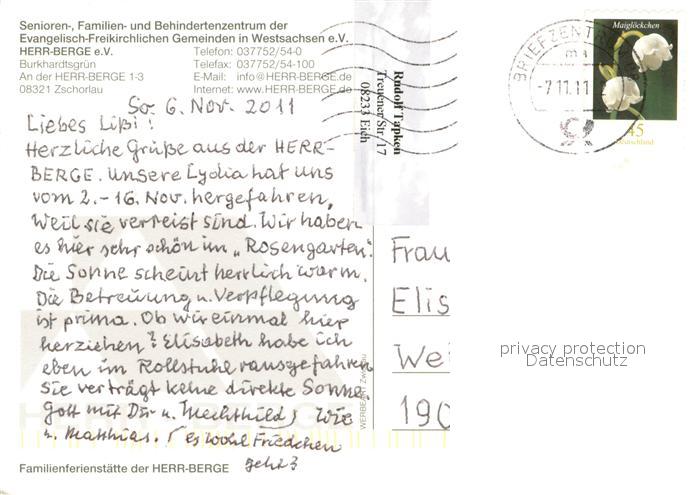 Senioren-, Familien- und Behindertenzentrum der
Evangelisch-Freikirchlichen Gemeinden in Westsachsen e.V.
HERR-BERGE e.V. Telefon: 037752/54-0
Burkhardtsgrün Telefax: 037752/54-100
An der HERR-BERGE 1-3 E-Mail: info@HERR-BERGE.de
08321 Zschorlau Internet: www.HERR-BERGE.de
So. 6. Nov. 2011
Liebes Lißi!
Herzliche Grüße aus der HERR-
BERGE. Unsere Lydia hat uns
vom 2.-16. Nov. hergefahren,
weil sie verreist sind. Wir haben
es hier sehr schön im „Rosengarten“.
Die Sonne scheint herrlich warm.
Die Betreuung u. Verpflegung
ist prima. Ob wir einmal hier
herziehen? Elisabeth habe ich
eben im Rollstuhl rausgefahren
sie verträgt keine direkte Sonne.
Gott mit Dir u. Mechthild) Wie
u. Matthias. es wohl Friedchen
geht?
Familienferienstätte der HERR-BERGE
Rudolf Tapken
Treuener Str. 17
08233 Eich
BRIEFZENTR
-7.11.11
Maiglöckchen
45
Deutschland
Frau
Elis
We
190
privacy protection
Datenschutz
HERR-BERGE